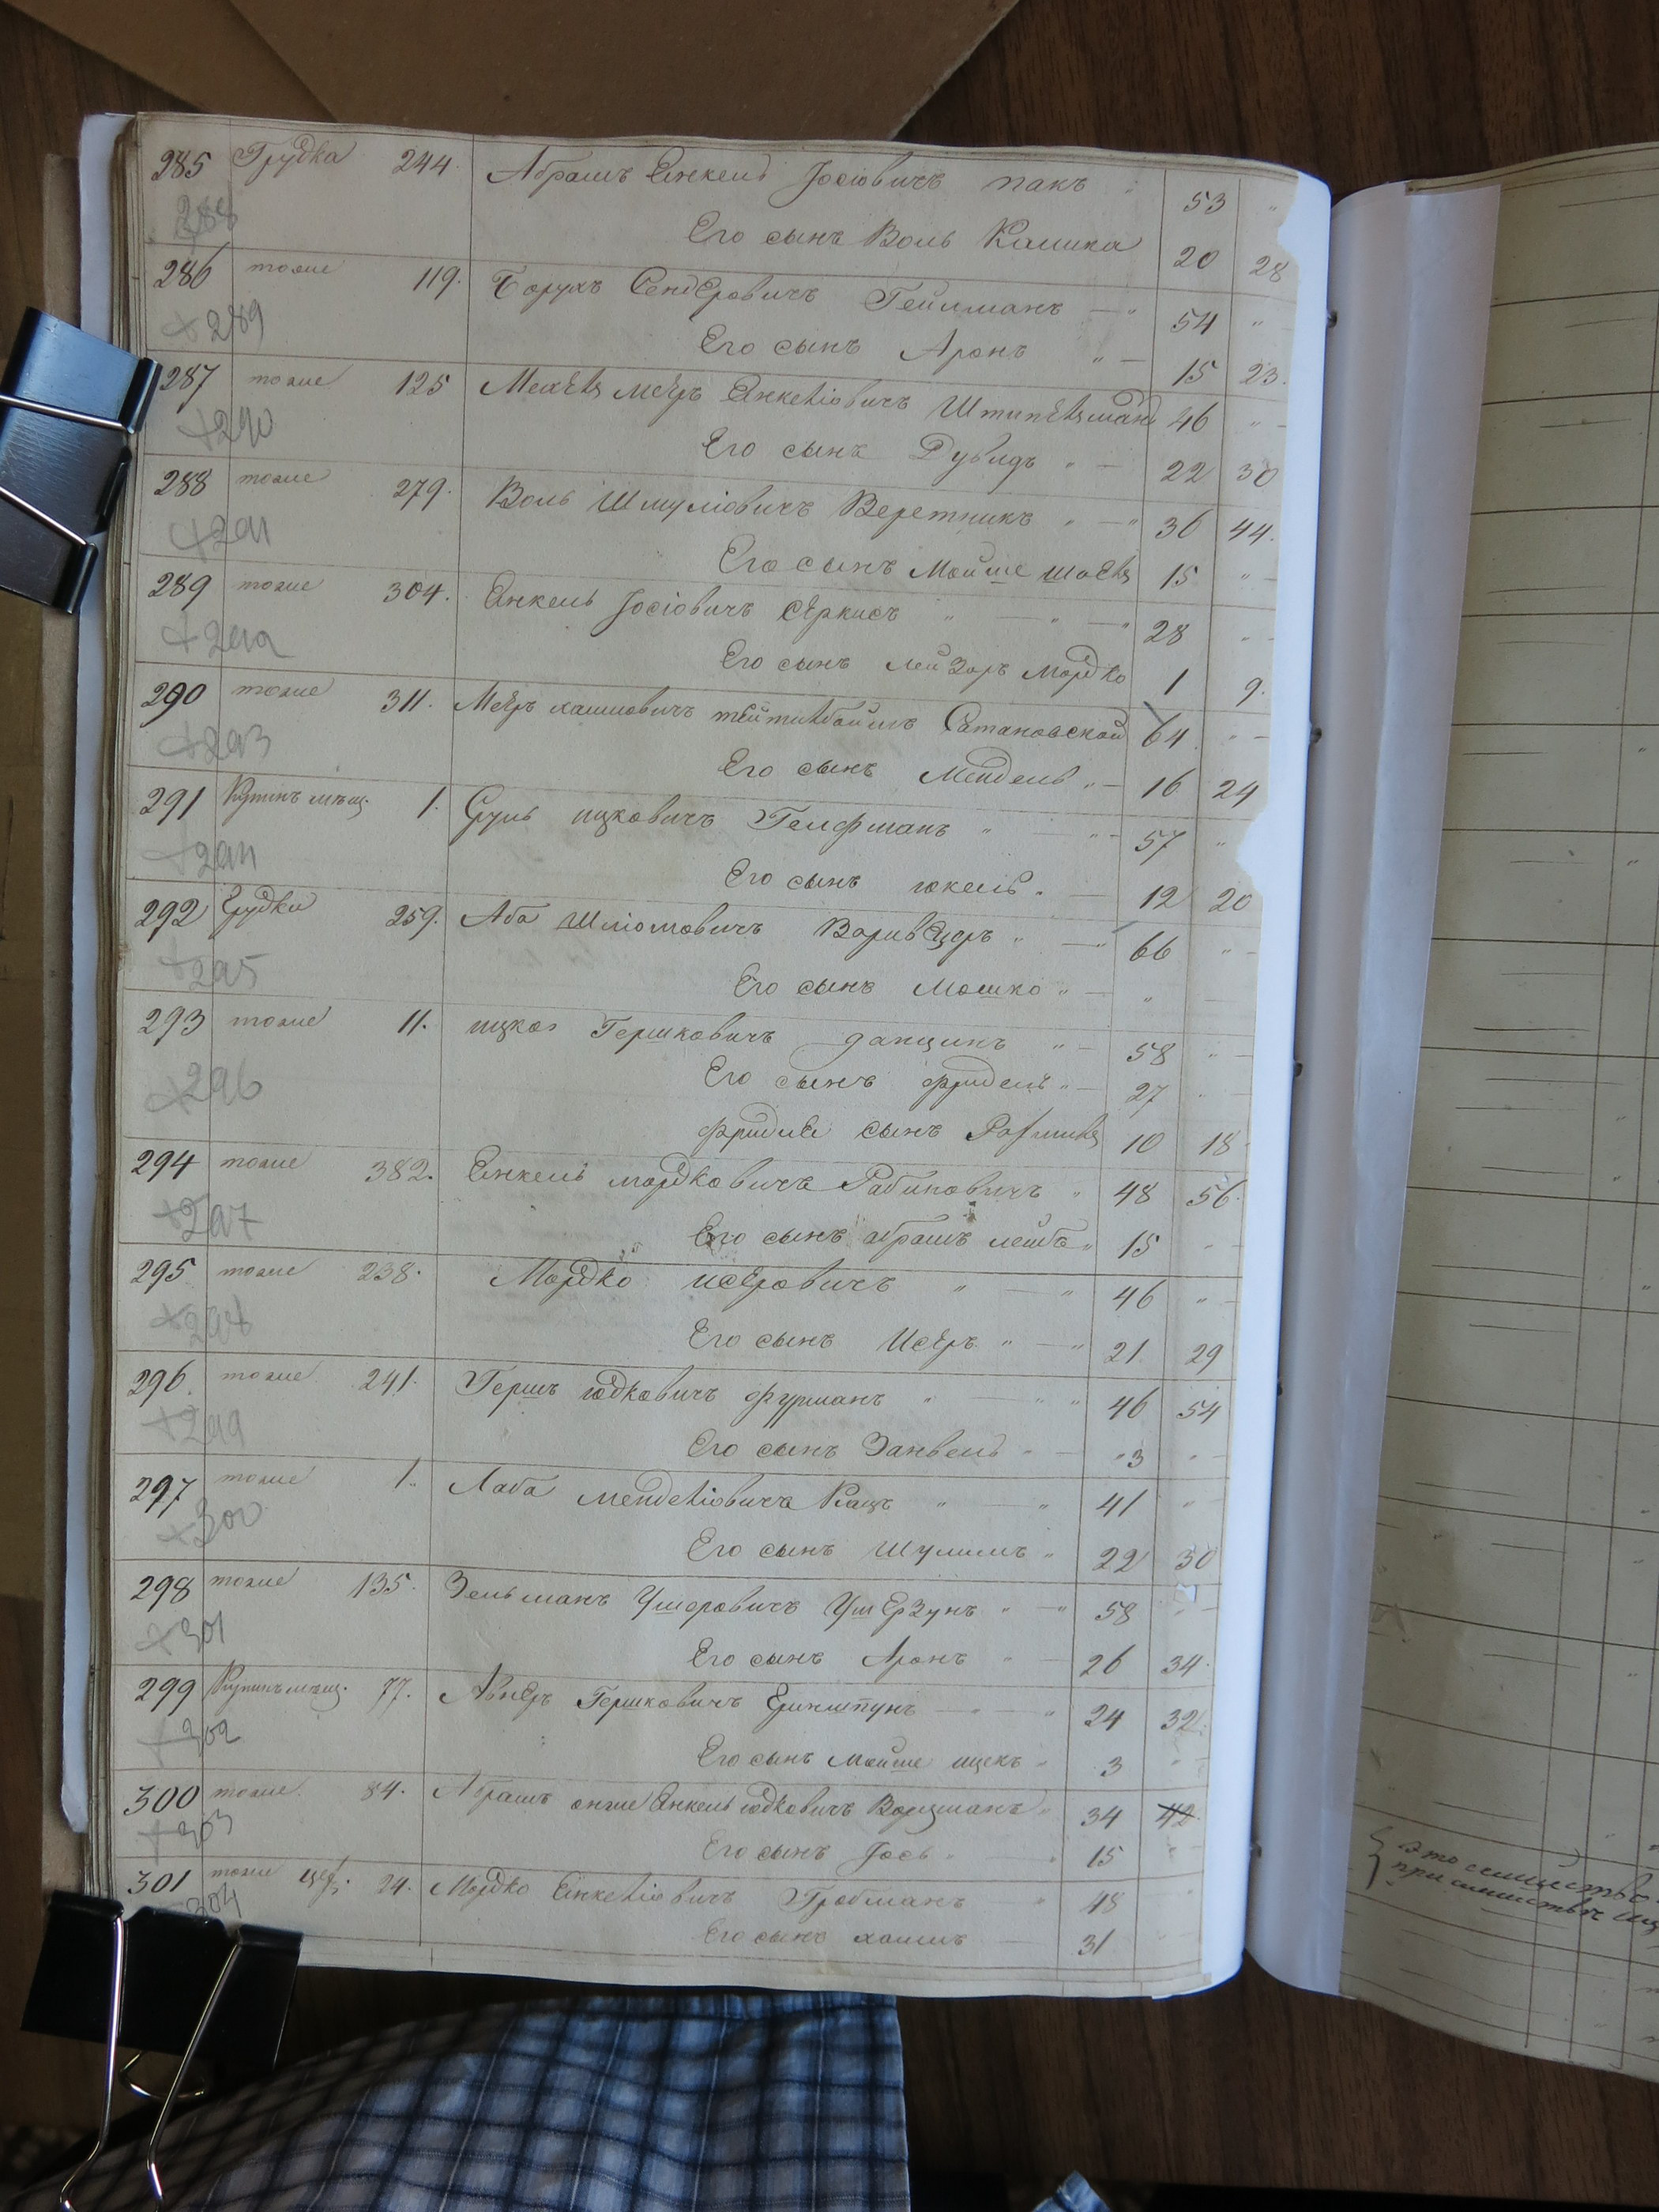 285 Грудка 244. Абрамъ Енкель Іосіовичъ пакъ 53 "
288 Его сынъ Воль 20 28
286 тоже 119. Борухъ Сендеровичъ Гейлманъ — " 54 "
+289 Его сынъ Аронъ " — 15 23.
287 тоже 125 Мехель меэръ Енкеліовичъ 46 " —
+290 Его сынъ Дувидъ " — 22 30
288 тоже 279. Воль Шмуліовичъ Веретникъ " — " 36 44.
+291 Его сынъ Мойше 15 " —
289 тоже 304. Енкель Іосіовичъ Сэркисъ " — " — " 28 " —
+292 Его сынъ лейзоръ Мордко 1 9.
290 тоже 311. Меэръ хаимовичъ Сатановской 64 " —
+293 Его сынъ Мендель " — 16 24
291 Купинъ мѣщ. 1. Сруль ицковичъ Гелфманъ " " — 57 "
+294 Его сынъ юкель " — 12 20
292 Грудка 259. Аба Шліомовичъ " — " 66 " —
+295 Его сынъ Мошко " — " —
293 тоже 11. ицко Гершковичъ данцинъ " — 58 " —
+296 Его сынъ фридель " — 27 " —
сынъ 10 18
294 тоже 382. Енкель мордковичъ Рабиновичъ " 48 56.
+297 Его сынъ абрамъ лейбъ " 15 " —
295 тоже 238. Мордко исеровичъ " — " 46 " —
+298 Его сынъ Исеръ " — " 21. 29
296. тоже 241. Гершъ юдковичъ фурманъ " — " " 46 54
+299 Его сынъ Занвель " — "3 " —
297 тоже 1. Лаба менделіовичъ Кацъ " — " 41 "
+300 Его сынъ Шулимъ " 22 30
298 тоже 135. Зельманъ Ушеровичъ " — " 58 " —
+301 Его сынъ Аронъ " — 26 34.
299 Купинъ мѣщ. 77. Авнеръ Гершковичъ — " — " 24 32.
+302 Его сынъ Мойше ицекъ " 3 " —
300 тоже. 84. Абрамъ Енкель юдковичъ " 34 42.
+303 Его сынъ Іось " — 15 " —
301 тоже 24. Мордко Енкеліовичъ Гробманъ " 48 "
304 Его сынъ хаимъ — 31
это семейство
при семействѣ